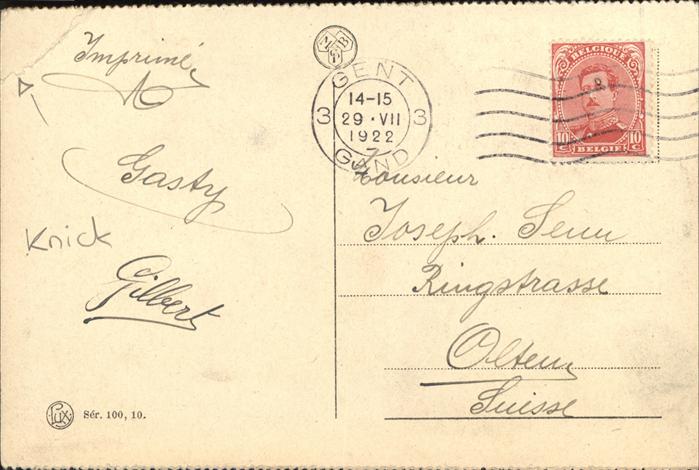 Imprimé
Gasty
Knick
Gilbert
Lux
Sér. 100, 10.
GENT
14-15
3 29·VII 3
1922
GAND
BELGIQUE
10 C 10 C
BELGIË
Monsieur
Joseph. Senn
Ringstrasse
Olten
Suisse